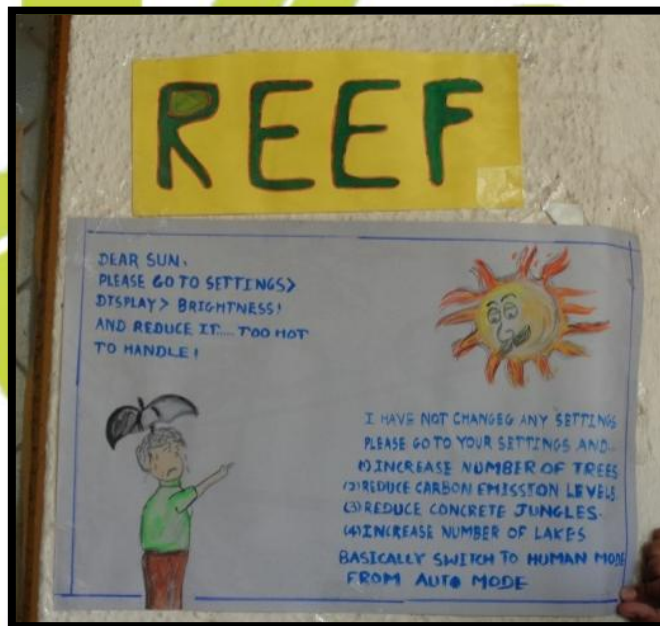 REEF
DEAR SUN,
PLEASE GO TO SETTINGS>
DISPLAY> BRIGHTNESS!
AND REDUCE IT.... TOO HOT
TO HANDLE!
I HAVE NOT CHANGEG ANY SETTINGS
PLEASE GO TO YOUR SETTINGS AND..
1) INCREASE NUMBER OF TREES
(2) REDUCE CARBON EMISSION LEVELS.
(3) REDUCE CONCRETE JUNGLES.
(4) INCREASE NUMBER OF LAKES
BASICALLY SWITCH TO HUMAN MODE
FROM AUTO MODE